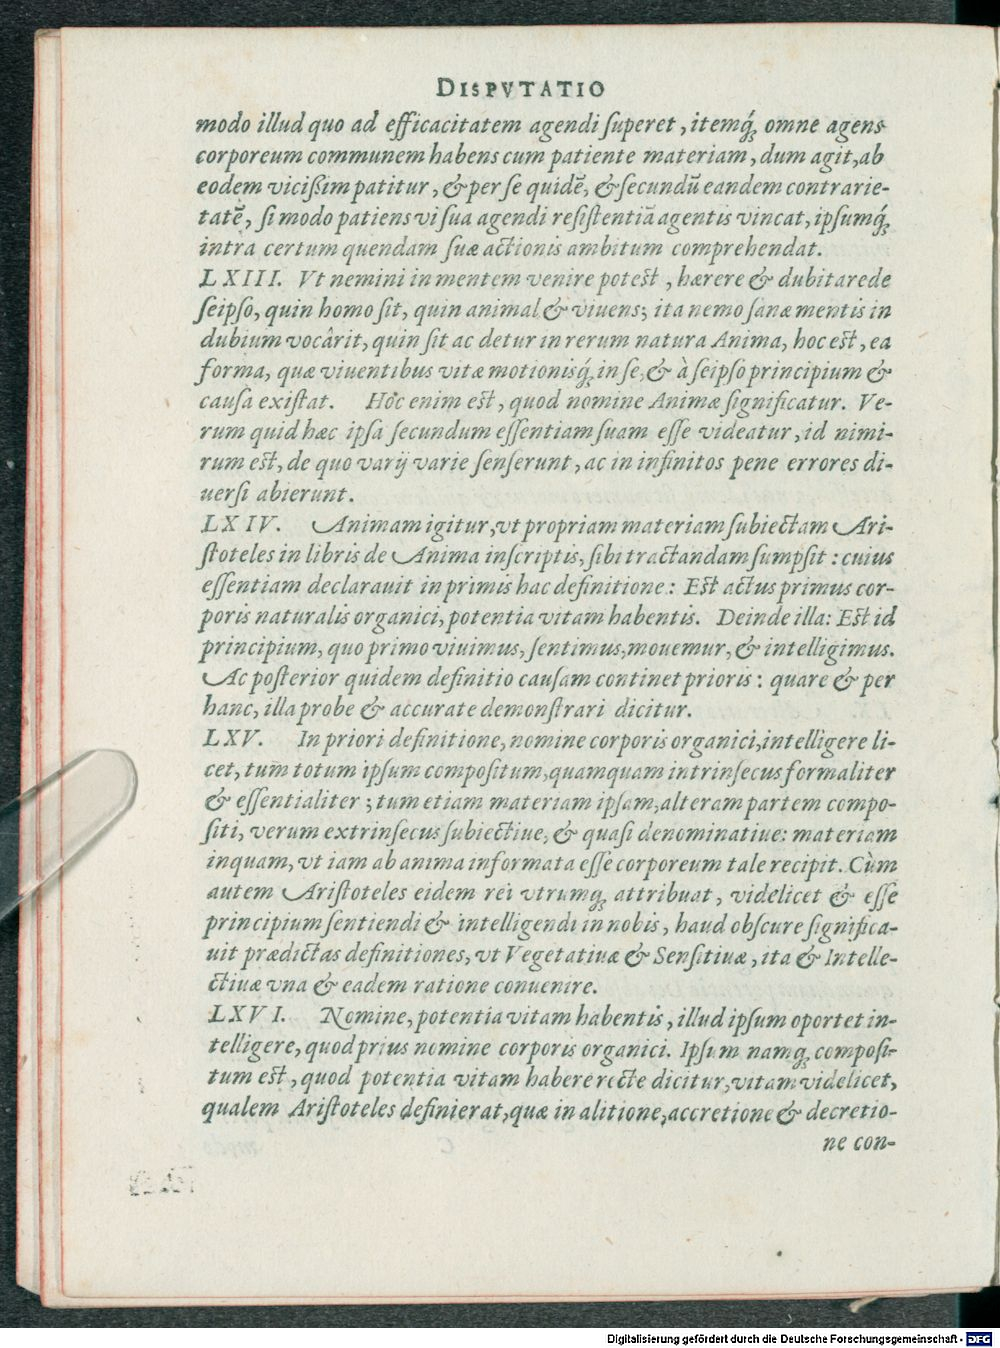 DISPVTATIO
modo illud quo ad efficacitatem agendi ſuperet, itemq́; omne agens
corporeum communem habens cum patiente materiam, dum agit, ab
eodem viciſſim patitur, & per ſe quidē, & ſecundū eandem contrarie-
tatē, ſi modo patiens vi ſua agendi reſiſtentiā agentis vincat, ipſumq́;
intra certum quendam ſuæ actionis ambitum comprehendat.
LXIII. Vt nemini in mentem venire poteſt, hærere & dubitare de
ſeipſo, quin homo ſit, quin animal & viuens; ita nemo ſanæ mentis in
dubium vocârit, quin ſit ac detur in rerum natura Anima, hoc eſt, ea
forma, quæ viuentibus vitæ motionisq́; in ſe, & à ſeipſo principium &
cauſa exiſtat. Hoc enim eſt, quod nomine Animæ ſignificatur. Ve-
rum quid hæc ipſa ſecundum eſſentiam ſuam eſſe videatur, id nimi-
rum eſt, de quo varij varie ſenſerunt, ac in infinitos pene errores di-
uerſi abierunt.
LXIV. Animam igitur, vt propriam materiam ſubiectam Ari-
ſtoteles in libris de Anima inſcriptis, ſibi tractandam ſumpſit: cuius
eſſentiam declarauit in primis hac definitione: Eſt actus primus cor-
poris naturalis organici, potentia vitam habentis. Deinde illa: Eſt id
principium, quo primo viuimus, ſentimus, mouemur, & intelligimus.
Ac poſterior quidem definitio cauſam continet prioris: quare & per
hanc, illa probe & accurate demonſtrari dicitur.
LXV. In priori definitione, nomine corporis organici, intelligere li-
cet, tum totum ipſum compoſitum, quamquam intrinſecus formaliter
& eſſentialiter; tum etiam materiam ipſam, alteram partem compo-
ſiti, verum extrinſecus ſubiectiue, & quaſi denominatiue: materiam
inquam, vt iam ab anima informata eſſe corporeum tale recipit. Cùm
autem Ariſtoteles eidem rei vtrumq; attribuat, videlicet & eſſe
principium ſentiendi & intelligendi in nobis, haud obſcure ſignifica-
uit prædictas definitiones, vt Vegetatiuæ & Senſitiuæ, ita & Intelle-
ctiuæ vna & eadem ratione conuenire.
LXVI. Nomine, potentia vitam habentis, illud ipſum oportet in-
telligere, quod prius nomine corporis organici. Ipſum namq; compoſi-
tum eſt, quod potentia vitam habere recte dicitur, vitam videlicet,
qualem Ariſtoteles definierat, quæ in alitione, accretione & decretio-
ne con-
Digitalisierung gefördert durch die Deutsche Forschungsgemeinschaft - DFG